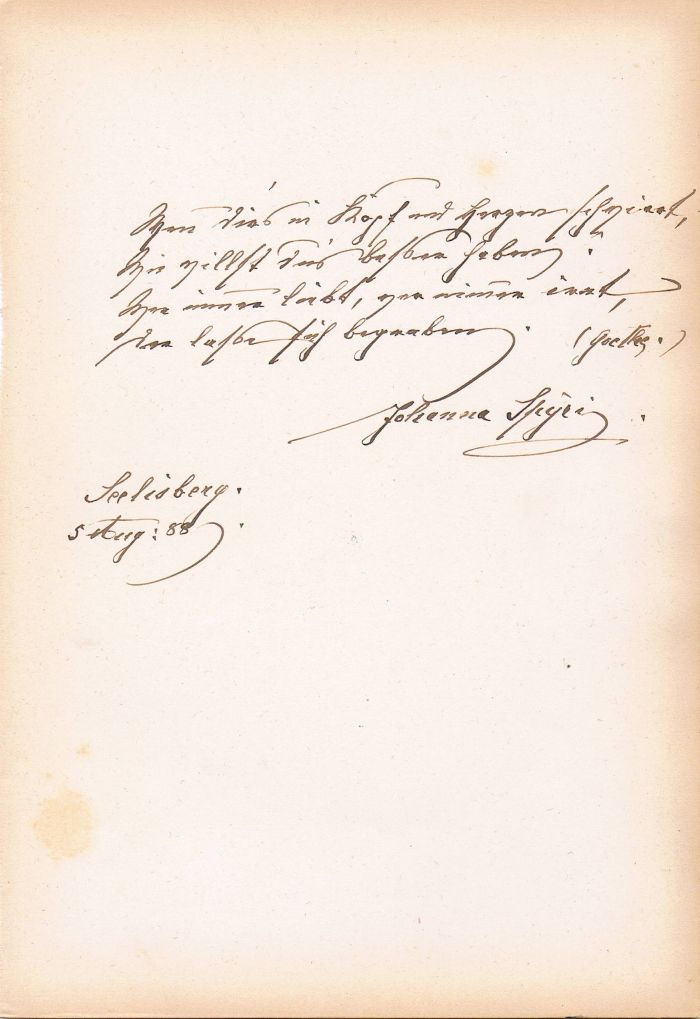 Wenn dirs in Kopf und Herzen schwirrt,
Wie willst du's besser haben.
Wer nimmer liebt, wer nimmer irrt,
Der lasse sich begraben. (Goethe.)
Johanna Spyri.
Seelisberg.
5 Aug: 88.